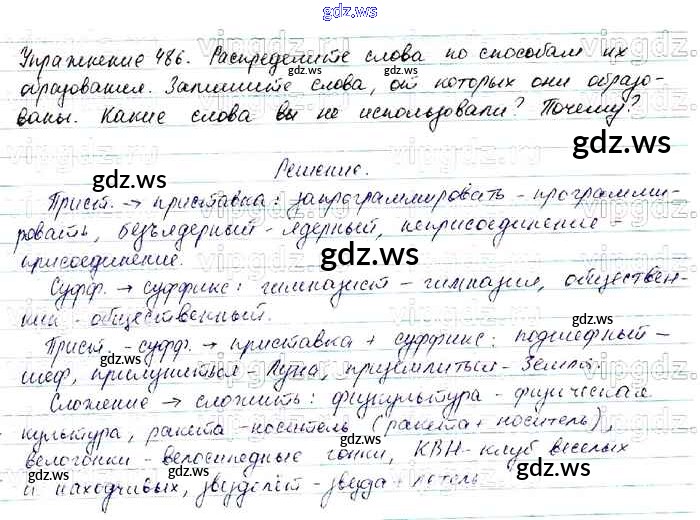 gdz.ws
Упражнение 486. Распределите слова по способам их
gdz.ws gdz.ws
образования. Запишите слова, от которых они образо-
ваны. Какие слова вы не использовали? Почему?
gdz.ws
Решение.
gdz.ws
Прист. → приставка: запрограммировать - программи-
gdz.ws
ровать, безъядерный - ядерный, неприсоединение -
gdz.ws
присоединение.
Суфф. → суффикс: гимназист - гимназия, обществен-
gdz.ws
ник - общественный.
Прист. - суфф. → приставка + суффикс: подшефный -
gdz.ws gdz.ws
шеф, прилуниться - Луна, приземлиться - Земля.
Сложение → сложить: физкультура - физическая
gdz.ws
культура, ракета-носитель (ракета + носитель),
gdz.ws gdz.ws
велогонки - велосипедные гонки, КВН - клуб веселых
gdz.ws
и находчивых, звездолёт - звезда +
gdz.ws